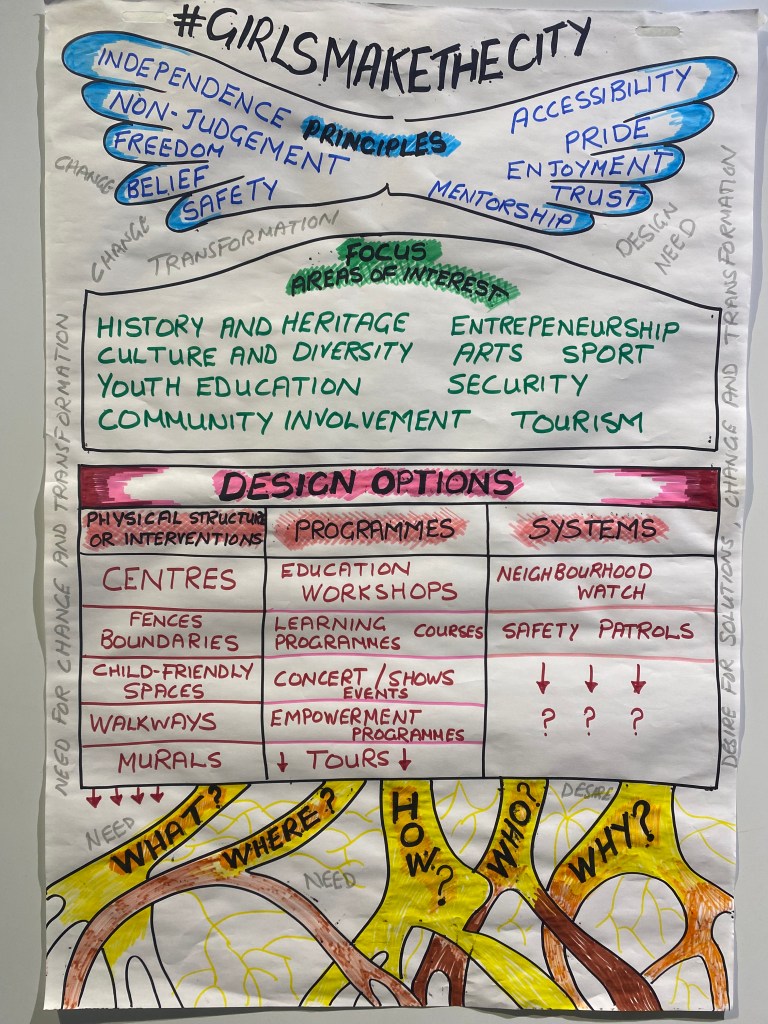 #GIRLSMAKETHECITY
INDEPENDENCE
NON-JUDGEMENT
FREEDOM
BELIEF
SAFETY
PRINCIPLES
ACCESSIBILITY
PRIDE
ENJOYMENT
TRUST
MENTORSHIP
CHANGE
CHANGE
TRANSFORMATION
DESIGN
NEED
FOCUS
AREAS OF INTEREST
HISTORY AND HERITAGE ENTREPENEURSHIP
CULTURE AND DIVERSITY ARTS SPORT
YOUTH EDUCATION SECURITY
COMMUNITY INVOLVEMENT TOURISM
NEED FOR CHANGE AND TRANSFORMATION
DESIRE FOR SOLUTIONS, CHANGE AND TRANSFORMATION
DESIGN OPTIONS
PHYSICAL STRUCTURE
OR INTERVENTIONS
PROGRAMMES
SYSTEMS
CENTRES
EDUCATION
WORKSHOPS
NEIGHBOURHOOD
WATCH
FENCES
BOUNDARIES
LEARNING
PROGRAMMES COURSES
SAFETY PATROLS
CHILD-FRIENDLY
SPACES
CONCERT/SHOWS
EVENTS
↓ ↓ ↓
WALKWAYS
EMPOWERMENT
PROGRAMMES
? ? ?
MURALS
↓ TOURS ↓
↓ ↓ ↓ ↓
NEED
WHAT?
WHERE?
NEED
HOW?
WHO?
DESIRE
WHY?